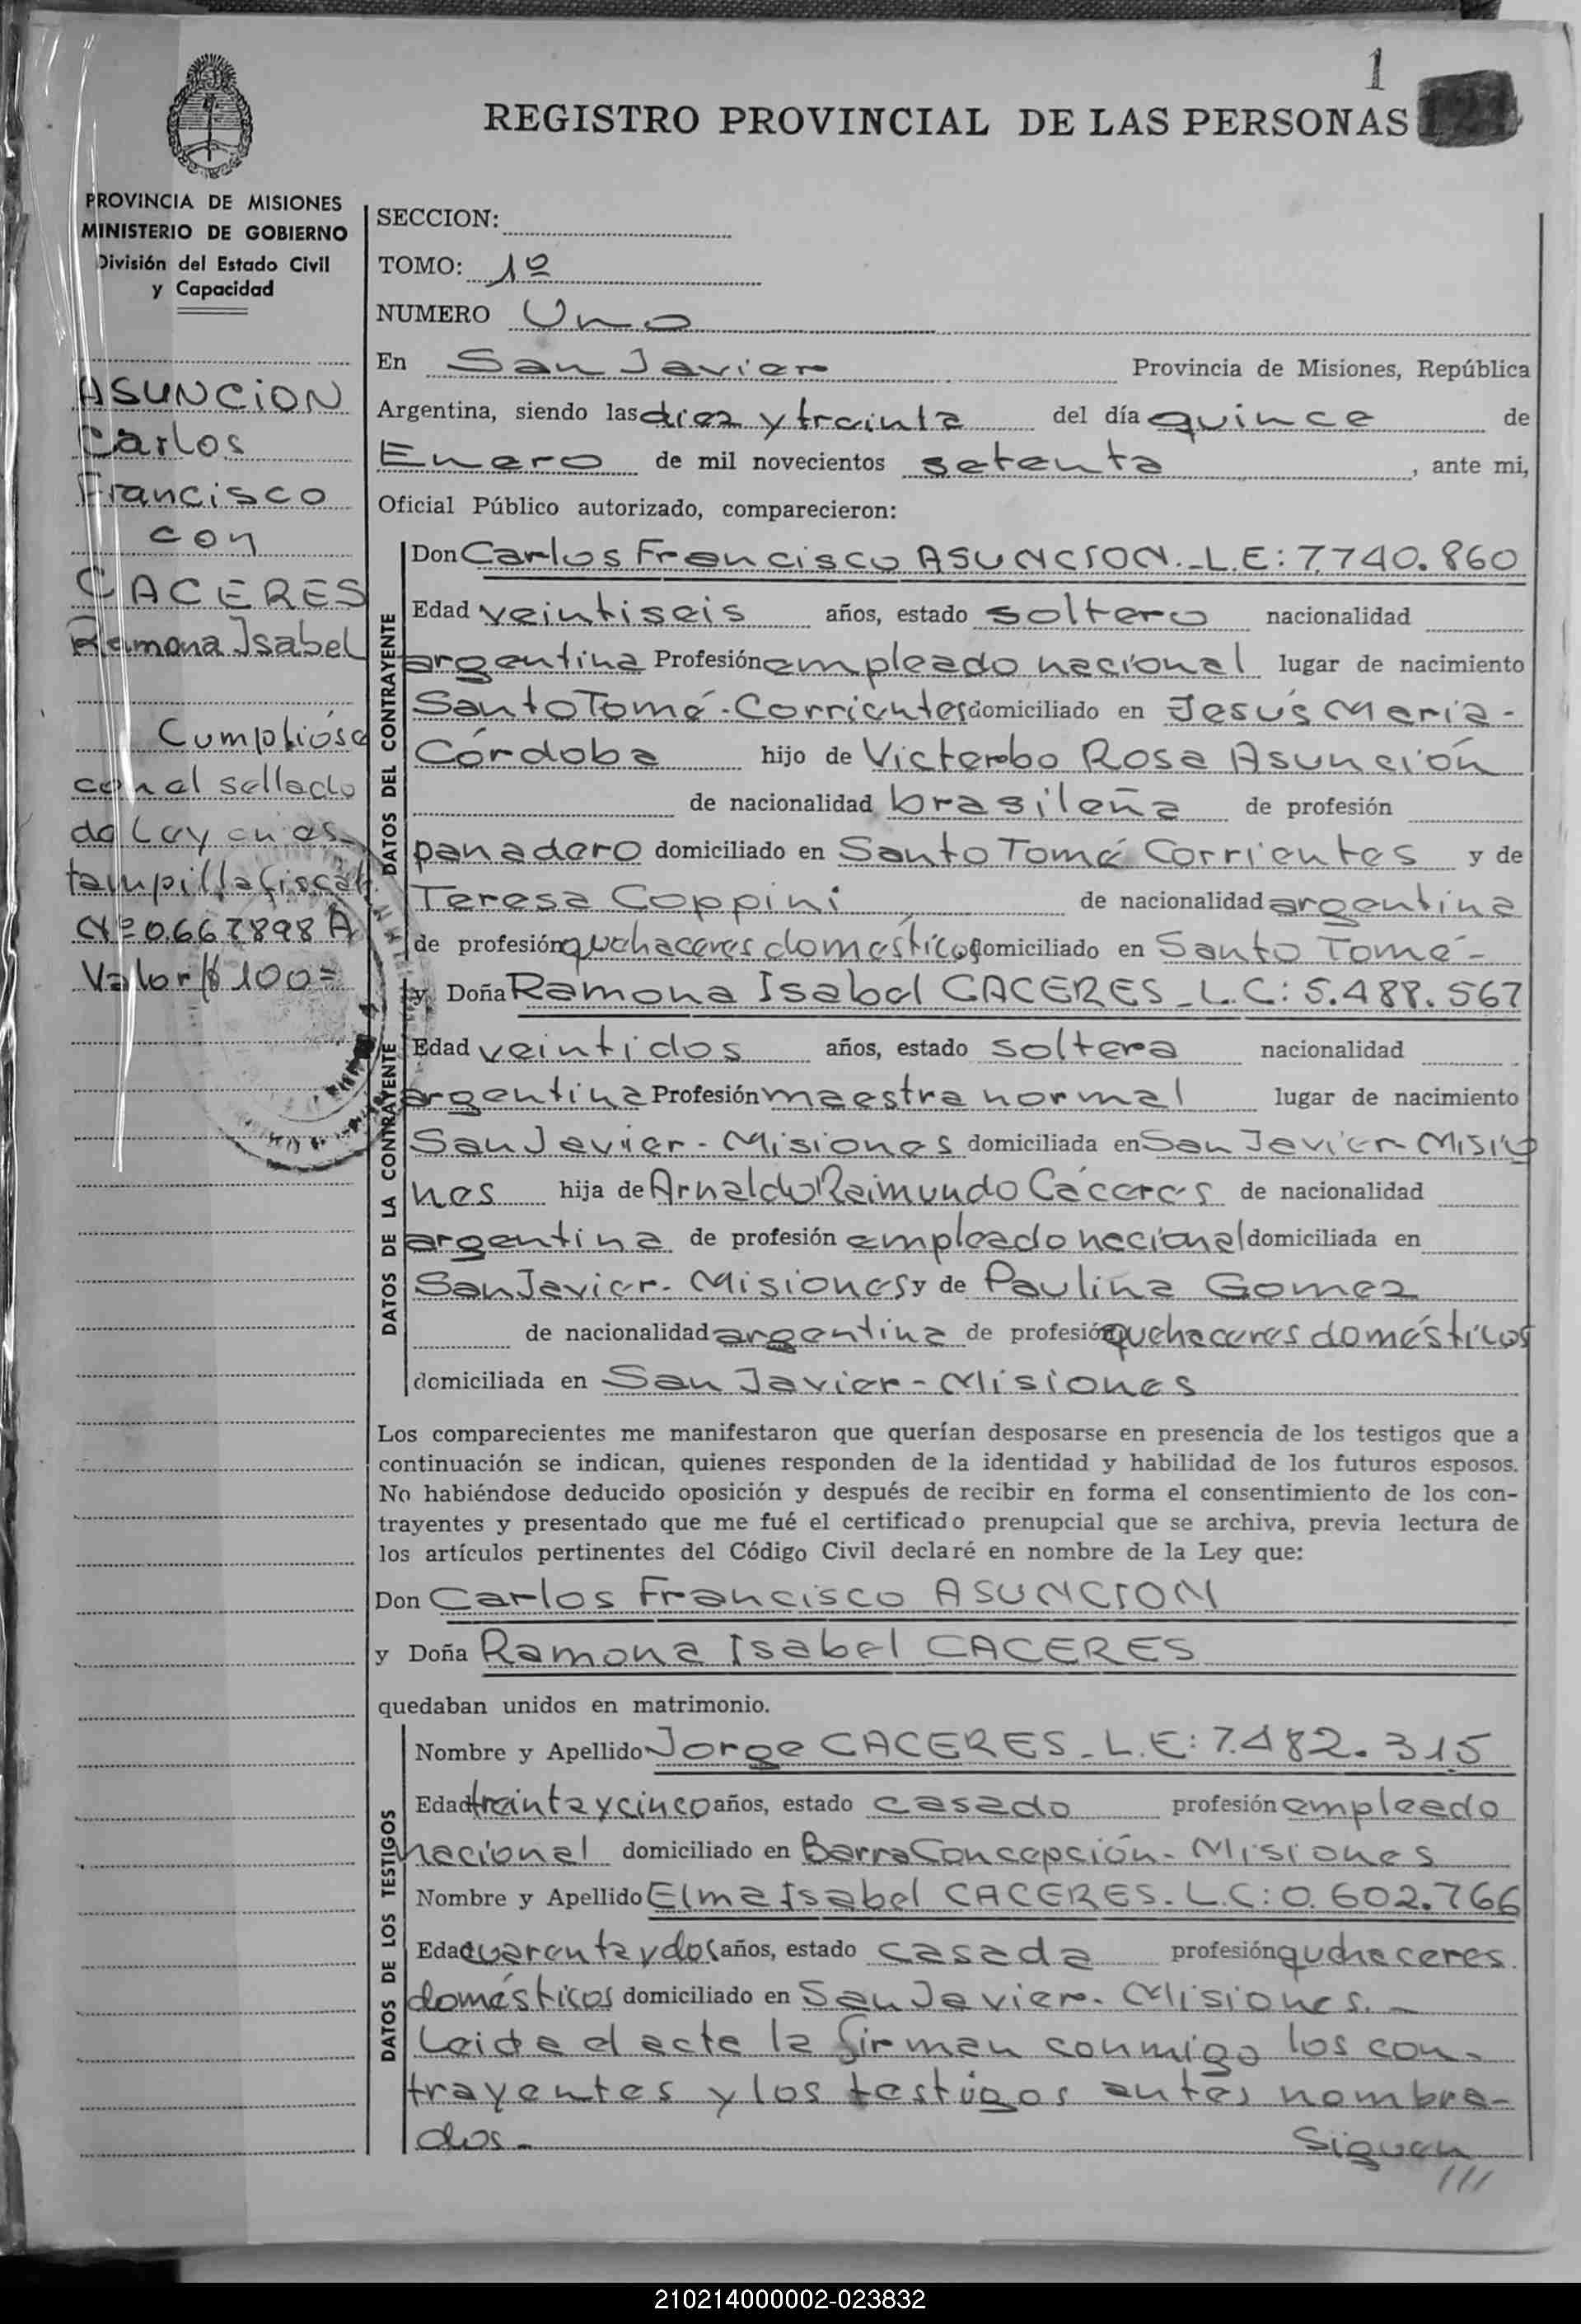 1
REGISTRO PROVINCIAL DE LAS PERSONAS
PROVINCIA DE MISIONES
MINISTERIO DE GOBIERNO
División del Estado Civil
y Capacidad
ASUNCION
Carlos
Francisco
con
CACERES
Ramona Isabel
Cumplióse
con el sellado
de Ley en es-
tampilla fiscal
Nº 0.667898 A
Valor $ 100=
SECCION:
TOMO: 1º
NUMERO Uno
En San Javier Provincia de Misiones, República
Argentina, siendo las diez y treinta del día quince de
Enero de mil novecientos setenta, ante mi,
Oficial Público autorizado, comparecieron:
DATOS DEL CONTRAYENTE
Don Carlos Francisco ASUNCION.- L.E: 7.740.860
Edad veintiseis años, estado soltero nacionalidad
argentina Profesión empleado nacional lugar de nacimiento
Santo Tomé - Corrientes domiciliado en Jesús María -
Córdoba hijo de Victerbo Rosa Asunción
de nacionalidad brasileña de profesión
panadero domiciliado en Santo Tomé Corrientes y de
Teresa Coppini de nacionalidad argentina
de profesión quehaceres domésticos domiciliado en Santo Tomé -
DATOS DE LA CONTRAYENTE
y Doña Ramona Isabel CACERES - L.C: 5.488.567
Edad veintidos años, estado soltera nacionalidad
argentina Profesión maestra normal lugar de nacimiento
San Javier - Misiones domiciliada en San Javier - Misio
nes hija de Arnaldo Raimundo Cáceres de nacionalidad
argentina de profesión empleado nacional domiciliada en
San Javier - Misiones y de Paulina Gomez
de nacionalidad argentina de profesión quehaceres domésticos
domiciliada en San Javier - Misiones
Los comparecientes me manifestaron que querían desposarse en presencia de los testigos que a
continuación se indican, quienes responden de la identidad y habilidad de los futuros esposos.
No habiéndose deducido oposición y después de recibir en forma el consentimiento de los con-
trayentes y presentado que me fué el certificado prenupcial que se archiva, previa lectura de
los artículos pertinentes del Código Civil declaré en nombre de la Ley que:
Don Carlos Francisco ASUNCION
y Doña Ramona Isabel CACERES
quedaban unidos en matrimonio.
DATOS DE LOS TESTIGOS
Nombre y Apellido Jorge CACERES - L.E: 7.482.315
Edad treinta y cinco años, estado casado profesión empleado
nacional domiciliado en Barra Concepción - Misiones
Nombre y Apellido Elma Isabel CACERES - L.C: 0.602.766
Edad cuarenta y dos años, estado casada profesión quehaceres
domésticos domiciliado en San Javier - Misiones. -
Leida el acta la firman conmigo los con-
trayentes y los testigos antes nombra-
dos - Siguen
///
210214000002-023832